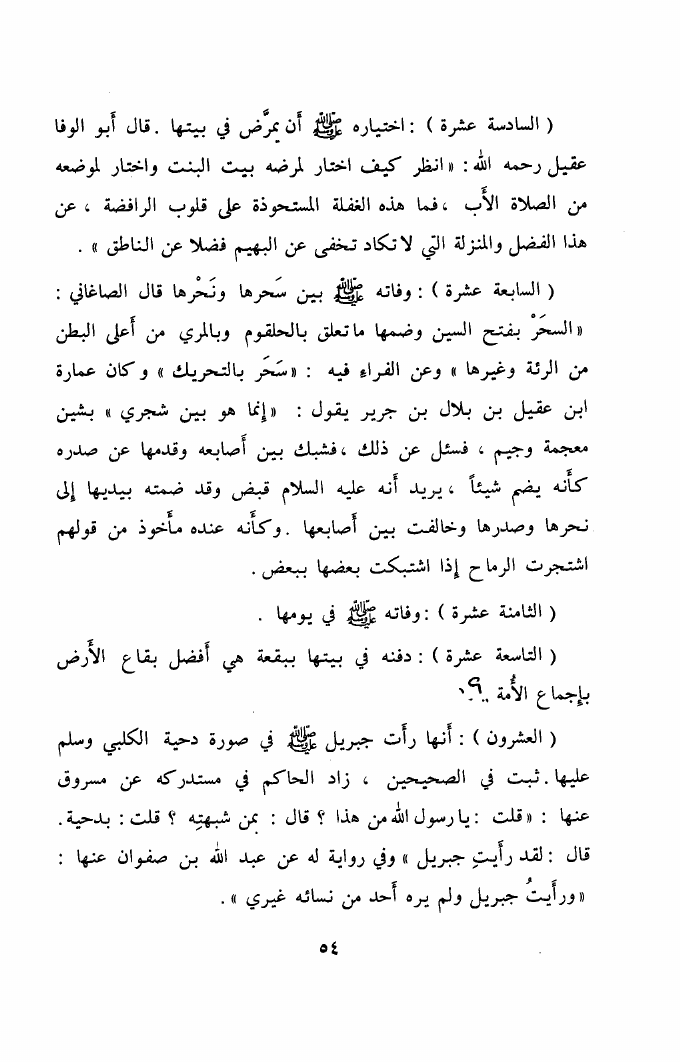 ( السادسة عشرة ) : اختياره ﷺ أَن يمرَّض في بيتها . قال أَبو الوفا
عقيل رحمه الله : « انظر كيف اختار لمرضه بيت البنت واختار لموضعه
من الصلاة الأَب ، فما هذه الغفلة المستحوذة على قلوب الرافضة ، عن
هذا الفضل والمنزلة التي لا تكاد تخفى عن البهيم فضلا عن الناطق » .
( السابعة عشرة ) : وفاته ﷺ بين سَحرها ونَحْرها قال الصاغاني :
« السحَرْ بفتح السين وضمها ماتعلق بالحلقوم وبالمري من أَعلى البطن
من الرئة وغيرها » وعن الفراء فيه : « سَحَر بالتحريك » وكان عمارة
ابن عقيل بن بلال بن جرير يقول : « إنما هو بين شجري » بشين
معجمة وجيم ، فسئل عن ذلك ، فشبك بين أَصابعه وقدمها عن صدره
كأَنه يضم شيئاً ، يريد أَنه عليه السلام قبض وقد ضمته بيديها إلى
نحرها وصدرها وخالفت بين أَصابعها . وكأَنه عنده مأْخوذ من قولهم
اشتجرت الرماح إِذا اشتبكت بعضها ببعض .
( الثامنة عشرة ) : وفاته ﷺ في يومها .
( التاسعة عشرة ) : دفنه في بيتها ببقعة هي أَفضل بقاع الأَرض
بإِجماع الأُمة
( العشرون ) : أَنها رأَت جبريل ﷺ في صورة دحية الكلبي وسلم
عليها . ثبت في الصحيحين ، زاد الحاكم في مستدركه عن مسروق
عنها : « قلت : يا رسول الله من هذا ؟ قال : بمن شبهتِه ؟ قلت : بدحية .
قال : لقد رأَيتِ جبريل » وفي رواية له عن عبد الله بن صفوان عنها :
« ورأَيتُ جبريل ولم يره أَحد من نسائه غيري » .
٥٤